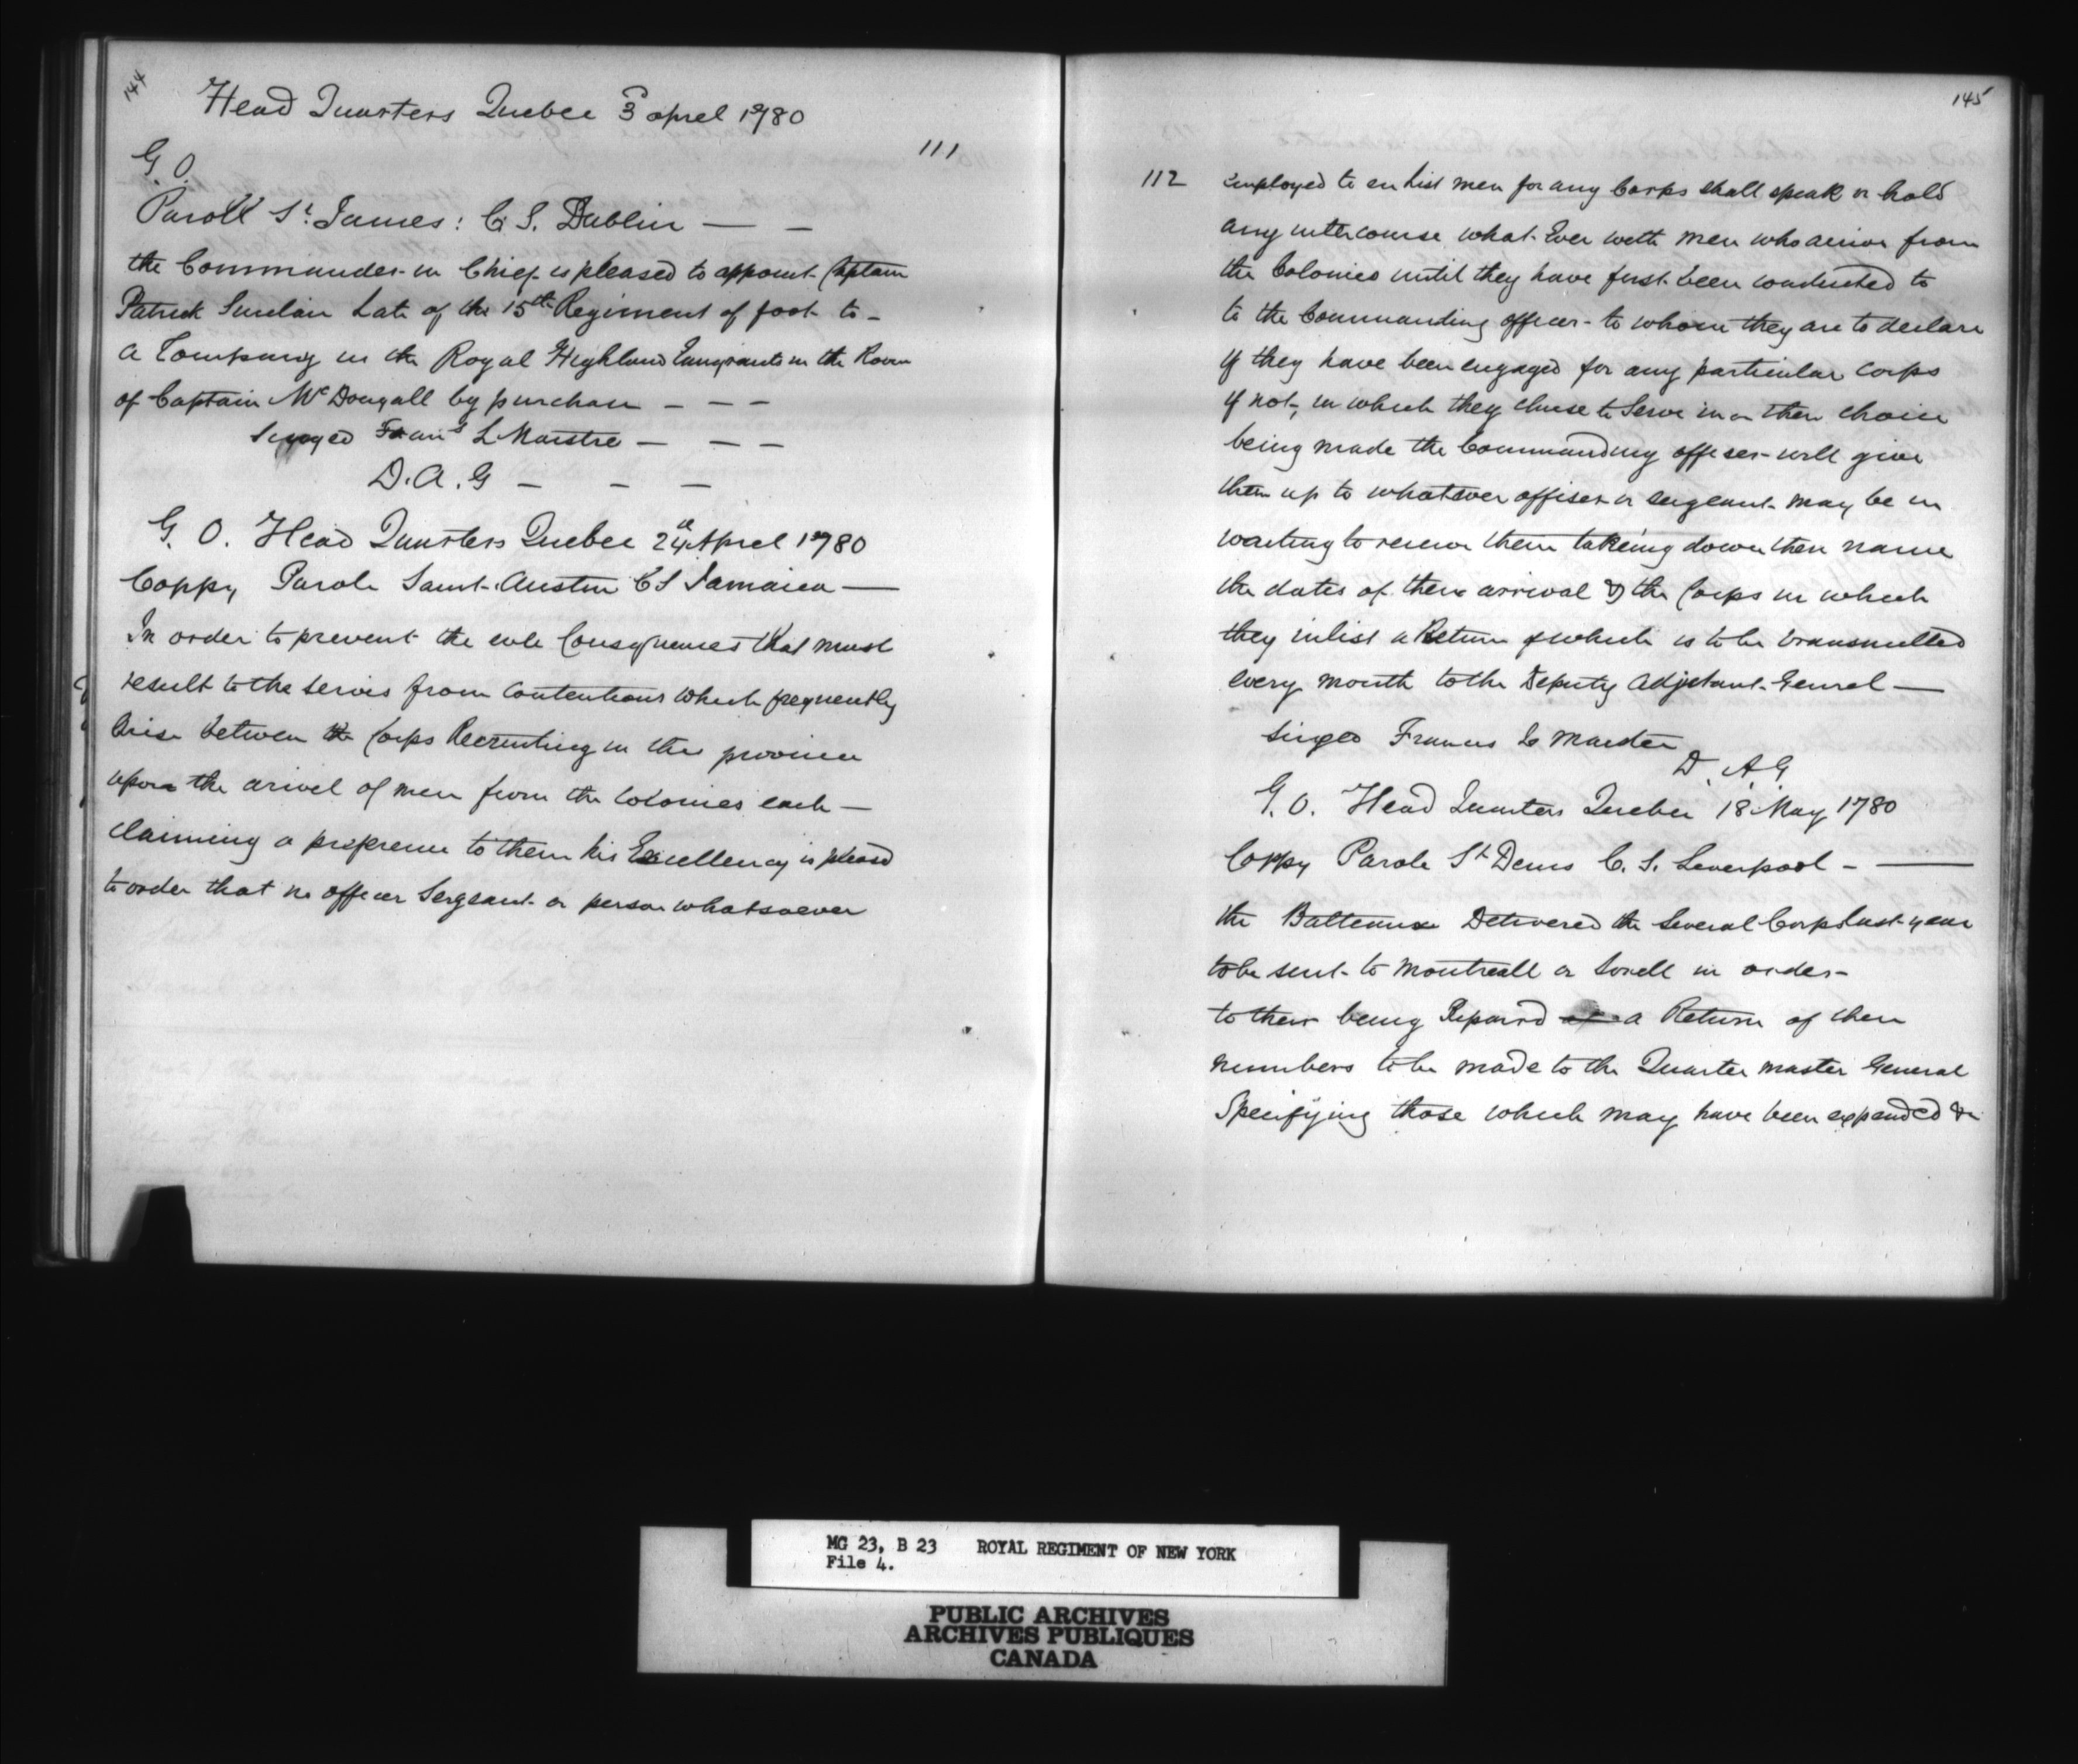 144
Head Quarters Quebec 3 aprel 1780
111
G. O.
Paroll St. James: C. S. Dublin — —
the Commander in Chief is pleased to appoint Captain
Patrick Sinclair Late of the 15th Regiment of foot to -
a Company in the Royal Highland Emigrants in the Room
of Captain McDougall by purchase - - -
Signed Frans L Maistre - - -
D. A. G - - -
G. O. Head Quarters Quebec 24th April 1780
Coppy Parole Saint Austin C S Jamaica —
In order to prevent the evle Consequenses that must
result to the servis from Contentions which frequently
Arise between the Corps Recruiting in this province
upon the arivel of men from the Colonies each —
claiming a preference to them his Excellency is pleased
to order that no officer Sergeant or person whatsoever
145
112
employed to enlist men for any Corps shall speak or hold
any intercourse what Ever with men who arrive from
the Colonies until they have first been conducted to
to the Commanding officer to whom they are to declare
if they have been engaged for any particular corps
if not, in which they chuse to Serve in a their choice
being made the Commanding offiser will give
them up to whatever offiser or sergeant may be in
waiting to receive them takeing down their name
the dates of there arrival & the Corps in which
they inlist a Return of which is to be transmitted
every month to the Deputy Adjetant Genrel —
Singed Francis Le Maister
D. A. G
G. O. Head Quarters Quebec 18 May 1780
Coppy Parole St Denis C. S. Leverpool - —
the Batteaux Delivered the Several Corps Last year
to be sent to Montreall or Sorell in order -
to their being Repaird a Return of their
numbers to be made to the Quarter master General
Specifying those which may have been expended &
MG 23, B 23 ROYAL REGIMENT OF NEW YORK
File 4.
PUBLIC ARCHIVES
ARCHIVES PUBLIQUES
CANADA